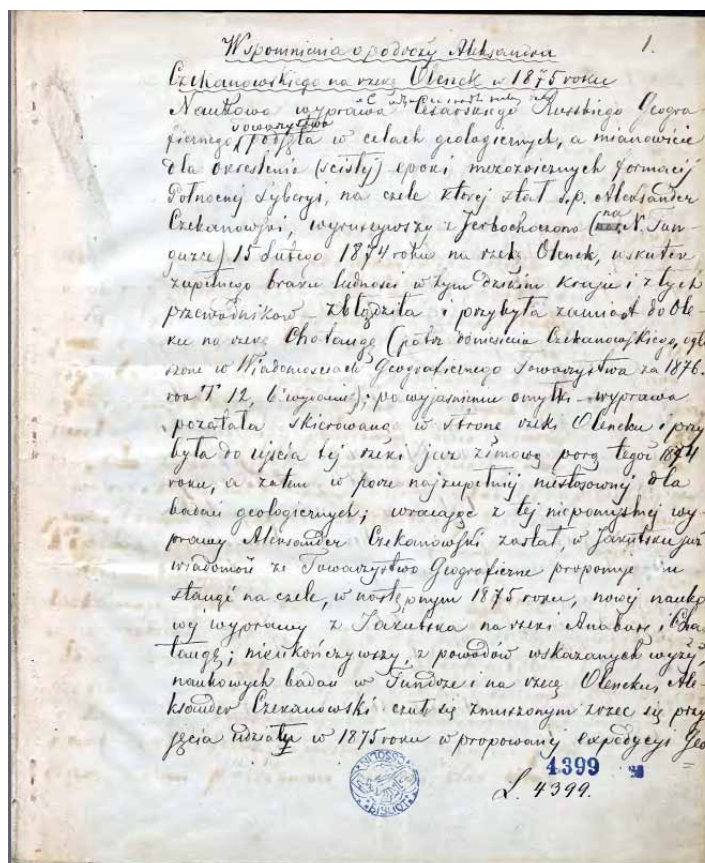 Wspomnienia o podróży Aleksandra
1.
Czekanowskiego na rzekę Olenek w 1875 roku
Naukowa wyprawa Cesarskiego Russkiego Geogra-
ficznego Towarzystwa podjęta w celach geologicznych, a mianowicie
dla określenia (ścisłej) epoki mezozoicznych formacij
Północnej Syberyi, na czele której stał ś.p. Aleksander
Czekanowski, wyruszywszy z Jerbochoczono (na N. Tun-
guzce) 15 Lutego 1874 roku na rzekę Olenek, wskutek
zupełnego braku ludności w tym dzikim kraju i złych
przewodników – zbłądziła i przybyła zamiast do Ole-
ku na rzekę Chatangę (patrz doniesienia Czekanowskiego, ogło
szone w Wiadomościach Geograficznego Towarzystwa za 1876.
rok T 12, 6 wydanie); po wyjaśnieniu omyłki – wyprawa
została skierowaną w stronę rzeki Oleneku i przy
była do ujścia tej rzeki już zimową porą tegoż 1874
roku, a zatem w porze najzupełniej niestosownej dla
badań geologicznych; wracając z tej niepomyślnej wy-
prawy Aleksander Czekanowski zastał, w Jakutsku już
wiadomość że Towarzystwo Geograficzne proponuje mu
stanąć na czele, w następnym 1875 roku, nowej nauko
wej wyprawy z Jakutska na rzeki Anabarę i Cha
tangę; nieukończywszy, z powodów wskazanych wyżej,
naukowych badań w Tundrze i na rzece Oleneku, Ale-
ksander Czekanowski czuł się zmuszonym zrzec się przy
jęcia udziału w 1875 roku w proponowanej expedycyi Geo
4399
L. 4399.